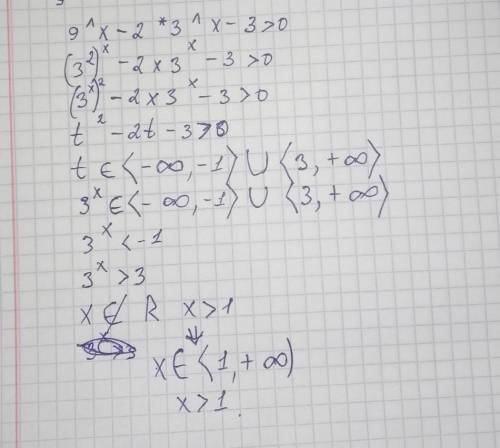 9^x-2*3^x-3>0
(3²)ˣ-2×3ˣ-3>0
(3ˣ)²-2×3ˣ-3>0
t²-2t-3>0
t∈⟨-∞,-1⟩∪⟨3,+∞⟩
3ˣ∈⟨-∞,-1⟩∪⟨3,+∞⟩
3ˣ<-1
3ˣ>3
x∉R x>1
↓
x∈⟨1,+∞)
x>1.